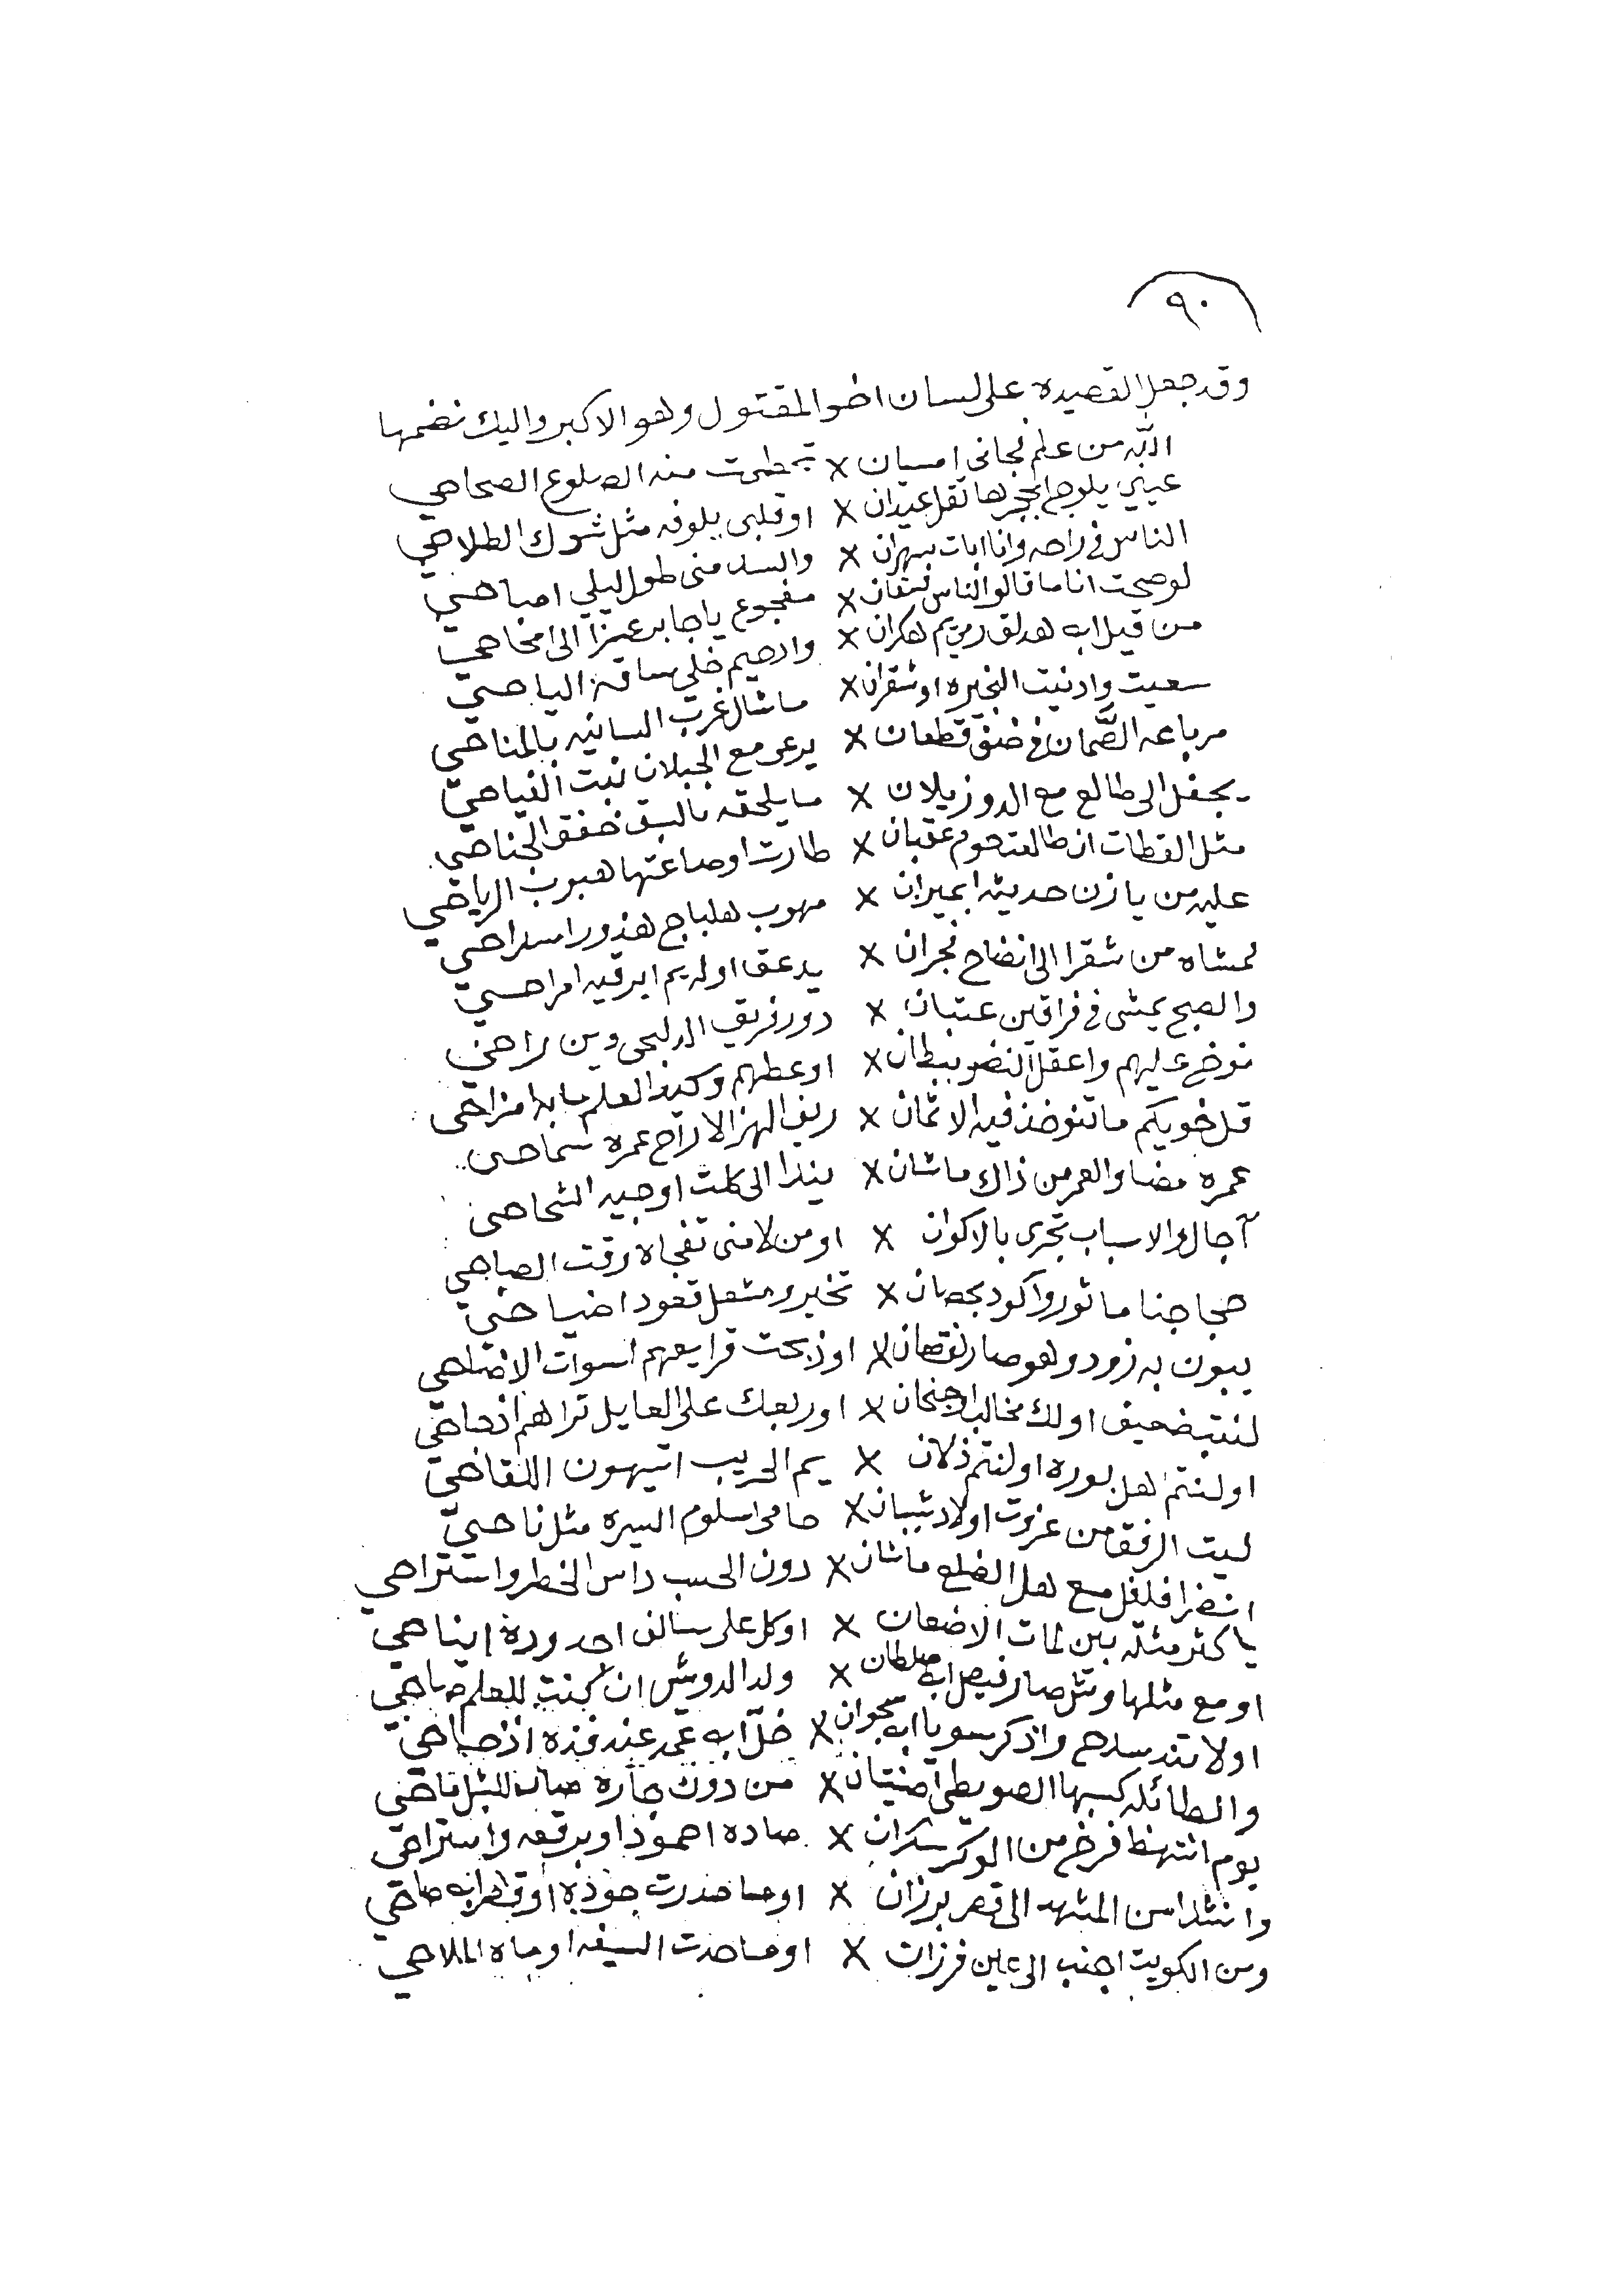 ٩٠
وقد جعل القصيده على لسان اخو المقتول وهو الاكبر واليك نضمها
الله من علم لجاني امسيان × تحطمت منه الضلوع الصحاحي
عيني يلوج ابحجرها ثقل عيدان × او قلبي يلوفه مثل شوك الطلاحي
الناس في راحه وانا ابات سهران × والسد مني طول ليلي امباحي
لو صحت انا ما قالوا الناس × مفجوع يا جابر عيزا الى
من قيل ابه هدلق رميم هكران × وادحيم خلي ساقة
سعيت وادنيت النحيره او شقران × ما شال غرب السانيه بالمناحي
مرباعه الصَّمان في ضف قطعان × يرعى مع الجبلان نبت الفياحي
يجفل الى طالع مع الدو زيلان × ما يلحقه بالسبق خفق الجناحي
مثل القطات ان طالعت حوم عقبان × طارت او صاعتها هبوب الرياحي
عليه من يازن حديثه ابميزان × مهوب هلباج هذور
ممشاه من شقرا الى انضاح نجران × يدعق اوله يم ابرقيه امراحي
والصبح يمشي في فراقين عتبان × دور فريق الدلبحي وين راحي
نوخ عليهم واعقل النضو ببطان × او عطهم وكد العلم ما به امزاحي
قل خويكم ما تنوخذ فيه الاثمان × ريف الهزالا راح عمره سماحي
عمره مضا والعمر من ذاك ما شان × يندا الى كلت اوجيه الشحاحي
آجال والاسباب تجرى بالاكوان × او من لا مني تفجاه وقت الصباحي
حجاجنا ما ثوروا كود بحصان × تخير ومشعل قعود اضياحي
يبون به زود وهو صار نقصان × او ذبحت قرايعهم اسوات الاضاحي
لنتب ضعيف اولك مخالب اوجنحان × او ربعك على العايل تراهم اذحاحي
اولنتم هل بوره اولنتم ذلان × يم الحريب اتيهون اللقاحي
ليت الرفق من عزوت اولاد شيبان × حامي اسلوم السبره مثل ناحي
انضرا فلفل مع هل الضلع ماشان × دون الحسب داس الخطر واستراحي
يا كثر مثله بين لمات الاضعان × او كل على سالف اجدوده ايناحي
او مع مثلها وش صار فيصل ابه سلطان × ولد الدويش ان كنت للعلم صاحي
اولا تند سلاح واذكر سويا ابه سجوان × خلا ابه عمه عند فذه
والطائله كسبها الصويطي اضنيتان × من دون جاره صاب للشبل ناحي
يوم انتهض فرخ من الوكر سكران × صاده احمود او برقعه واستراحي
وانشدا من المشهد الى قصر برزان × او ما حدرت جوذبه
ومن الكويت اجنب الى عين فرزان × او ما حدت السيفه او ماه الملاحي